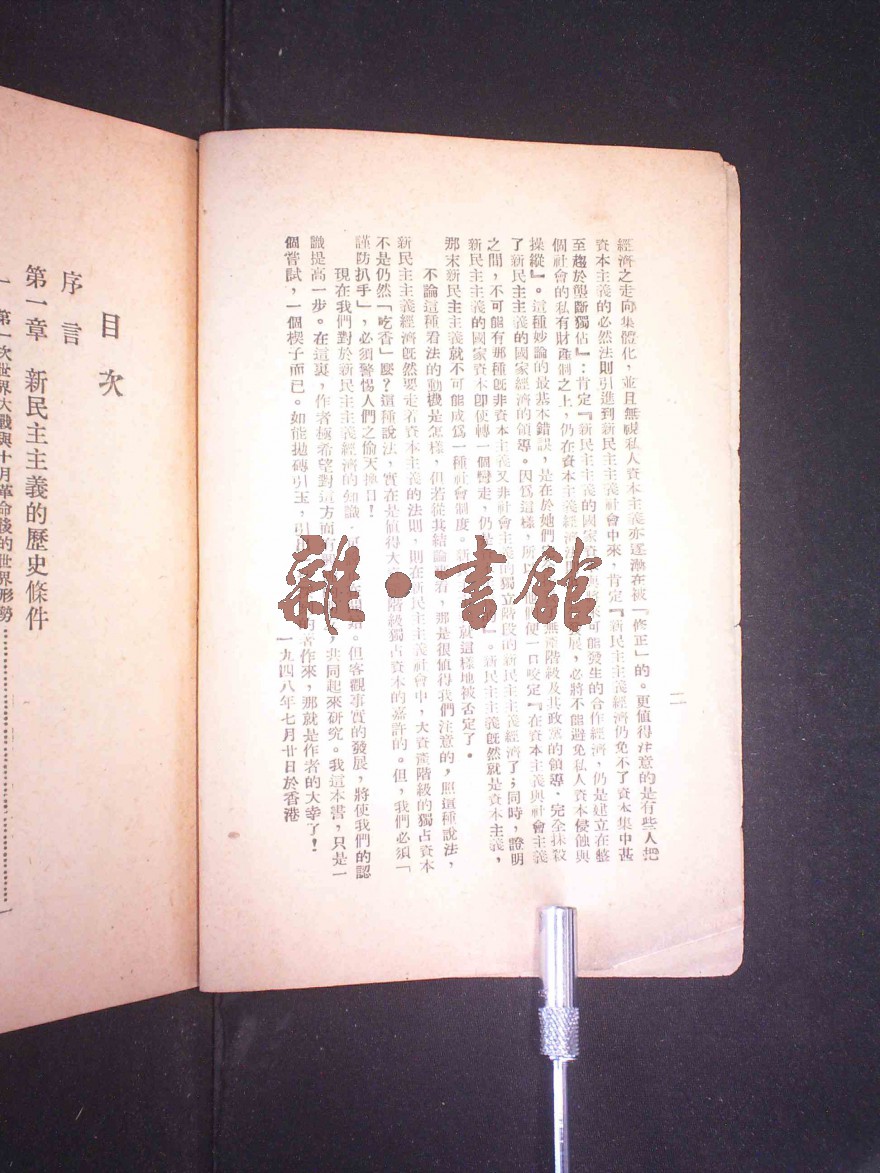 二
經濟之走向集體化,並且無視私人資本主義亦逐漸在被「修正」的。更值得注意的是有些人把
資本主義的必然法則引進到新民主主義社會中來,肯定『新民主主義經濟仍免不了資本集中甚
至趨於壟斷獨佔』;肯定『新民主主義的國家資 可能發生的合作經濟,仍是建立在整
個社會的私有財產制之上,仍在資本主義經濟 展,必將不能避免私人資本侵蝕與
操縱』。這種妙論的最基本錯誤,是在於她們 無產階級及其政黨的領導,完全抹殺
了新民主主義的國家經濟的領導。因爲這樣,所以 便一口咬定『在資本主義與社會主義
之間,不可能有那種旣非資本主義又非社會主義的獨立階段的新民主主義經濟了;同時,證明
新民主主義的國家資本卽使轉一個彎走,仍是 』。新民主主義旣然就是資本主義,
那末新民主主義就不可能成爲一種社會制度。 就這樣地被否定了。
不論這種看法的動機是怎樣,但若從其結論 看,那是很值得我們注意的,照這種說法,
新民主主義經濟旣然要走着資本主義的法則,則在新民主主義社會中,大資產階級的獨占資本
不是仍然「吃香」麼?這種說法,實在是值得大 階級獨占資本的嘉許的。但,我們必須「
謹防扒手」,必須警惕人們之偷天換日!
現在我們對於新民主主義經濟的知識, 始。但客觀事實的發展,將使我們的認
識提高一步。在這裏,作者極希望對這方面有 共同起來研究。我這本書,只是一
個嘗試,一個楔子而已。如能拋磚引玉,引 著作來,那就是作者的大幸了!
一九四八年七月廿日於香港
目次
序言
第一章 新民主主義的歷史條件
一 第一次世界大戰與十月革命後的世界形勢
雜·書館